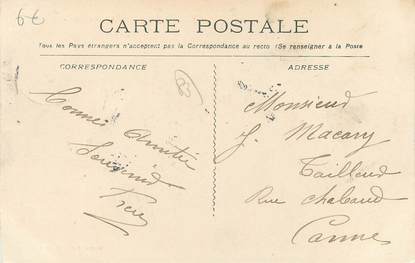 6€
CARTE POSTALE
Tous les Pays étrangers n'acceptent pas la Correspondance au recto (Se renseigner à la Poste)
CORRESPONDANCE
ADRESSE
Monsieur
J. Macary
Tailleur
Rue Chabaud
Cannes
Amitié
Souvenir